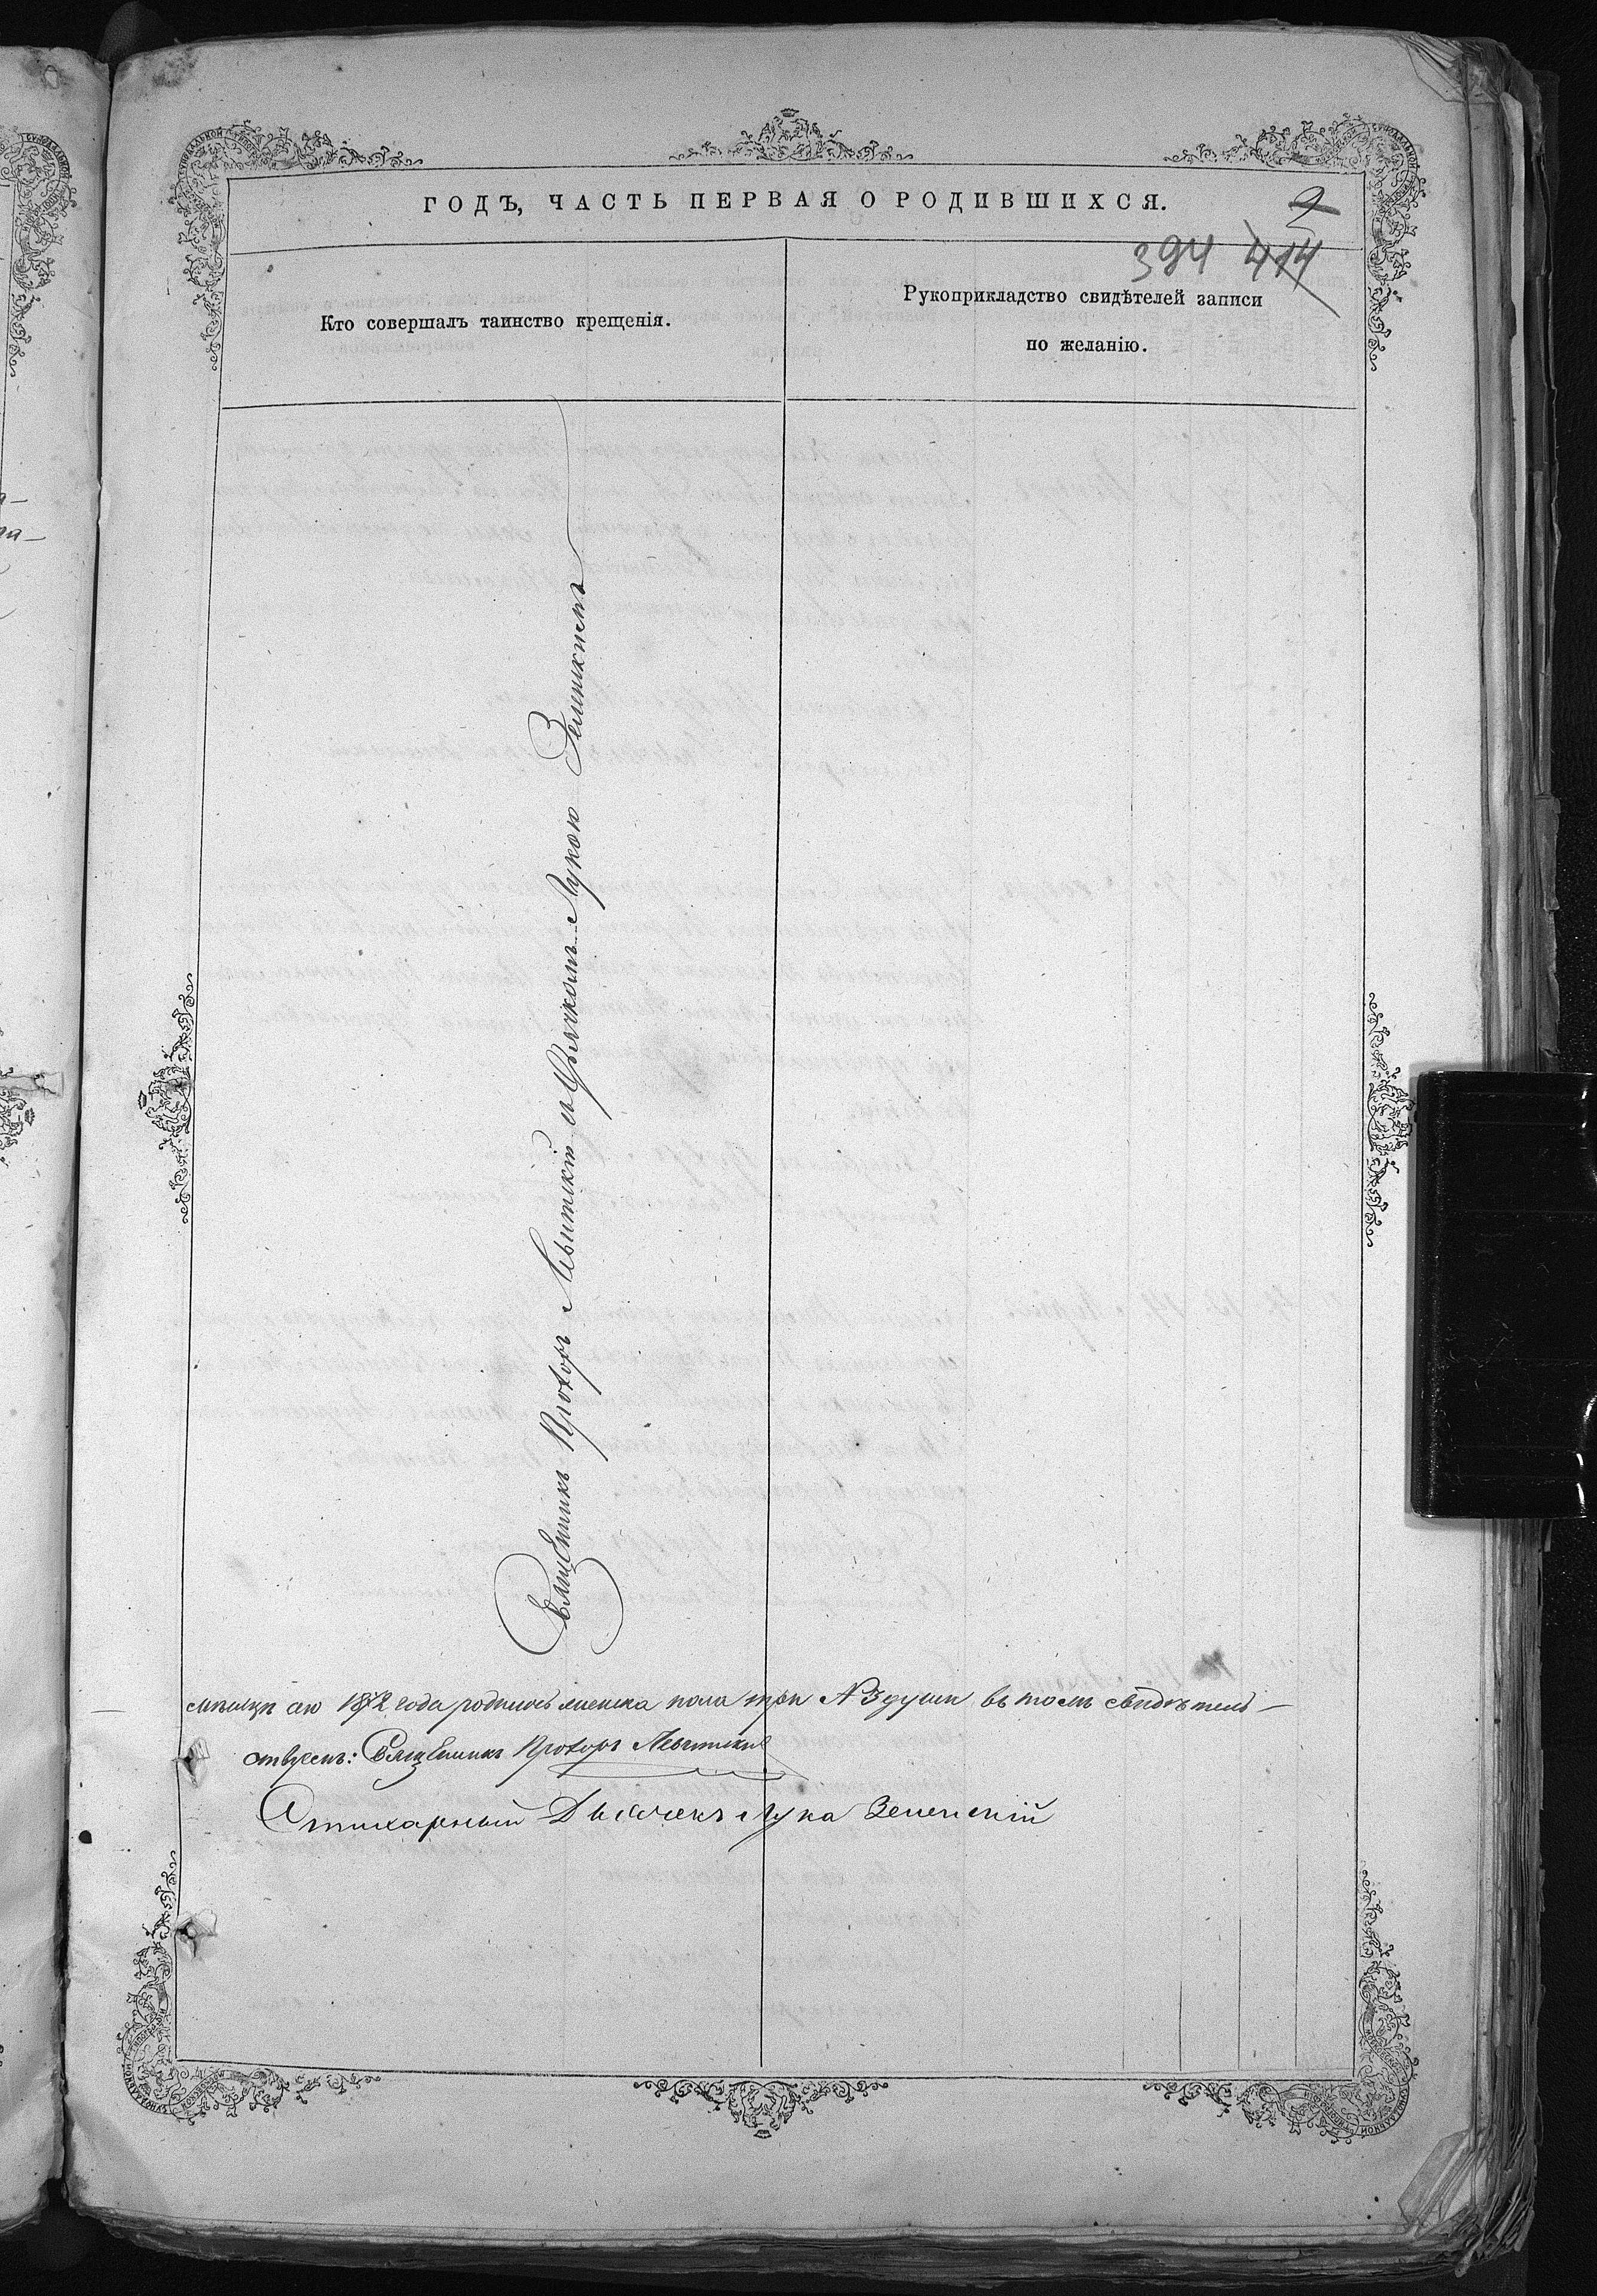 ГОДЪ, ЧАСТЬ ПЕРВАЯ О РОДИВШИХСЯ.
9
394 414
Кто совершалъ таинство крещенія.
Рукоприкладство свидѣтелей записи
по желанію.
Священникъ Прохоръ Левитскій съ Дьячкомъ Лукою Зеленскимъ
1872 года родилось женска пола три №3 души въ томъ свидѣтель–
ствуемъ: Священникъ Прохоръ Левитскій
Стихарный Дьячекъ Лука Зеленскій